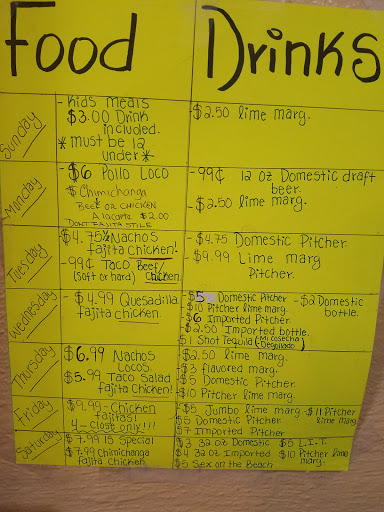 Food Drinks
Sunday
- Kids meals
$3.00 Drink
included.
* must be 12
under *
- $2.50 lime marg.
Monday
- $6 Pollo Loco
$ Chimichanga
Beef or chicken
A lacarte $2.00
Dont fajita stile
- 99¢ 12 oz Domestic draft
beer.
- $2.50 lime marg.
Tuesday
$4.75 ½ Nachos
fajita chicken!
- 99¢ Taco Beef/
(Soft or hard) chicken.
- $4.75 Domestic Pitcher.
$9.99 Lime marg
Pitcher.
Wednesday
- $4.99 Quesadilla
fajita chicken.
$5 Domestic Pitcher - $2 Domestic
bottle.
$10 Pitcher lime marg.
$6 Imported Pitcher.
$2.50 Imported bottle.
$1 Shot Tequila (Mi cosecha
Degollado)
Thursday
$6.99 Nachos
Locos.
$5.99 Taco Salad
fajita Chicken!
$2.50 lime marg.
$3 flavored marg.
$5 Domestic Pitcher.
$10 Pitcher lime marg.
Friday
$9.99 - Chicken
fajitas!
4 - Close only!!!!
$5 Jumbo lime marg - $11 Pitcher
lime marg
$5 Domestic Pitcher
$7 Imported Pitcher
Saturday
$7.99 15 Special
$7.99 Chimichanga
fajita chicken
$3 32 oz Domestic $5 L.I.T.
$4 32 oz Imported $10 Pitcher lime
marg.
$5 Sex on the Beach